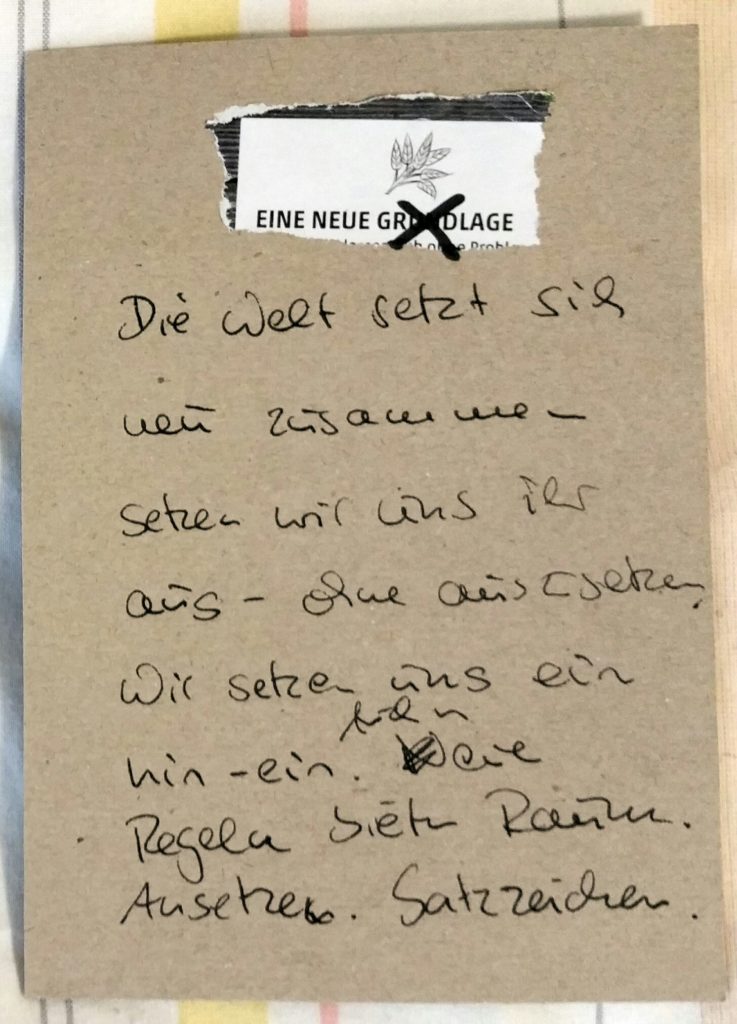 EINE NEUE GRUNDLAGE
ohne Probl
Die Welt setzt sich
neu zusammen
setzen wir uns ihr
aus – ohne auszusetzen,
Wir setzen uns ein
hin-ein.
Regeln bieten Raum.
Ansetzen. Satzzeichen.